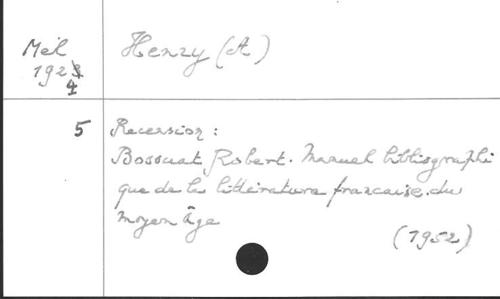 Mél Henry (A)
1924
5 Recension :
Bossuat Robert. Manuel bibliographi
que de la littérature française du
moyen âge
(1952)